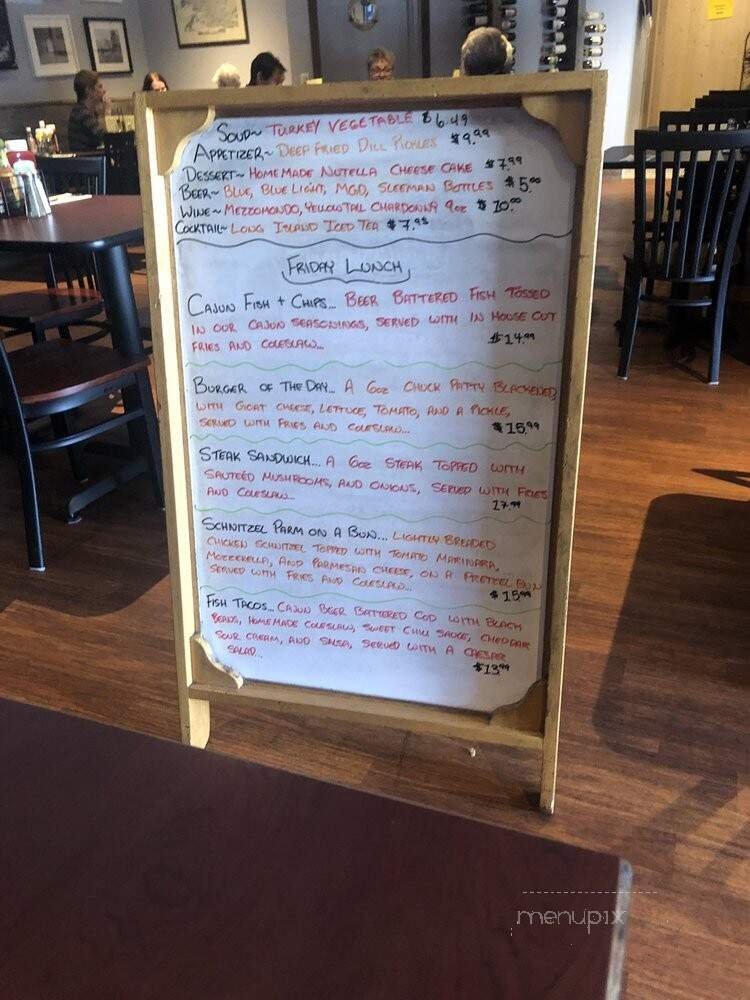 Soup~ Turkey Vegetable $6.49
Appetizer~ Deep Fried Dill Pickles $9.99
Dessert~ Homemade Nutella Cheese Cake $7.99
Beer~ Blue, Blue Light, MGD, Sleeman Bottles $5.00
Wine~ Mezzomondo, Yellow Tail Chardonnay 9oz $10.00
Cocktail~ Long Island Iced Tea $7.95
Friday Lunch
Cajun Fish + Chips... Beer Battered Fish Tossed
in our Cajun Seasonings, served with in house cut
fries and coleslaw... $14.99
Burger of the Day... A 6oz Chuck Patty Blackened,
with goat cheese, lettuce, tomato, and a pickle,
served with fries and coleslaw... $15.99
Steak Sandwich... A 6oz Steak Topped with
sautéed mushrooms, and onions, served with fries
and coleslaw... 17.99
Schnitzel Parm on a Bun... Lightly Breaded
chicken schnitzel topped with tomato marinara,
mozzerella, and parmesan cheese, on a pretzel bun
served with fries and coleslaw... $15.99
Fish Tacos... Cajun Beer Battered Cod with Black
beans, homemade coleslaw, sweet chili sauce, cheddar
sour cream, and salsa, served with a caesar
salad... $13.99
menupix